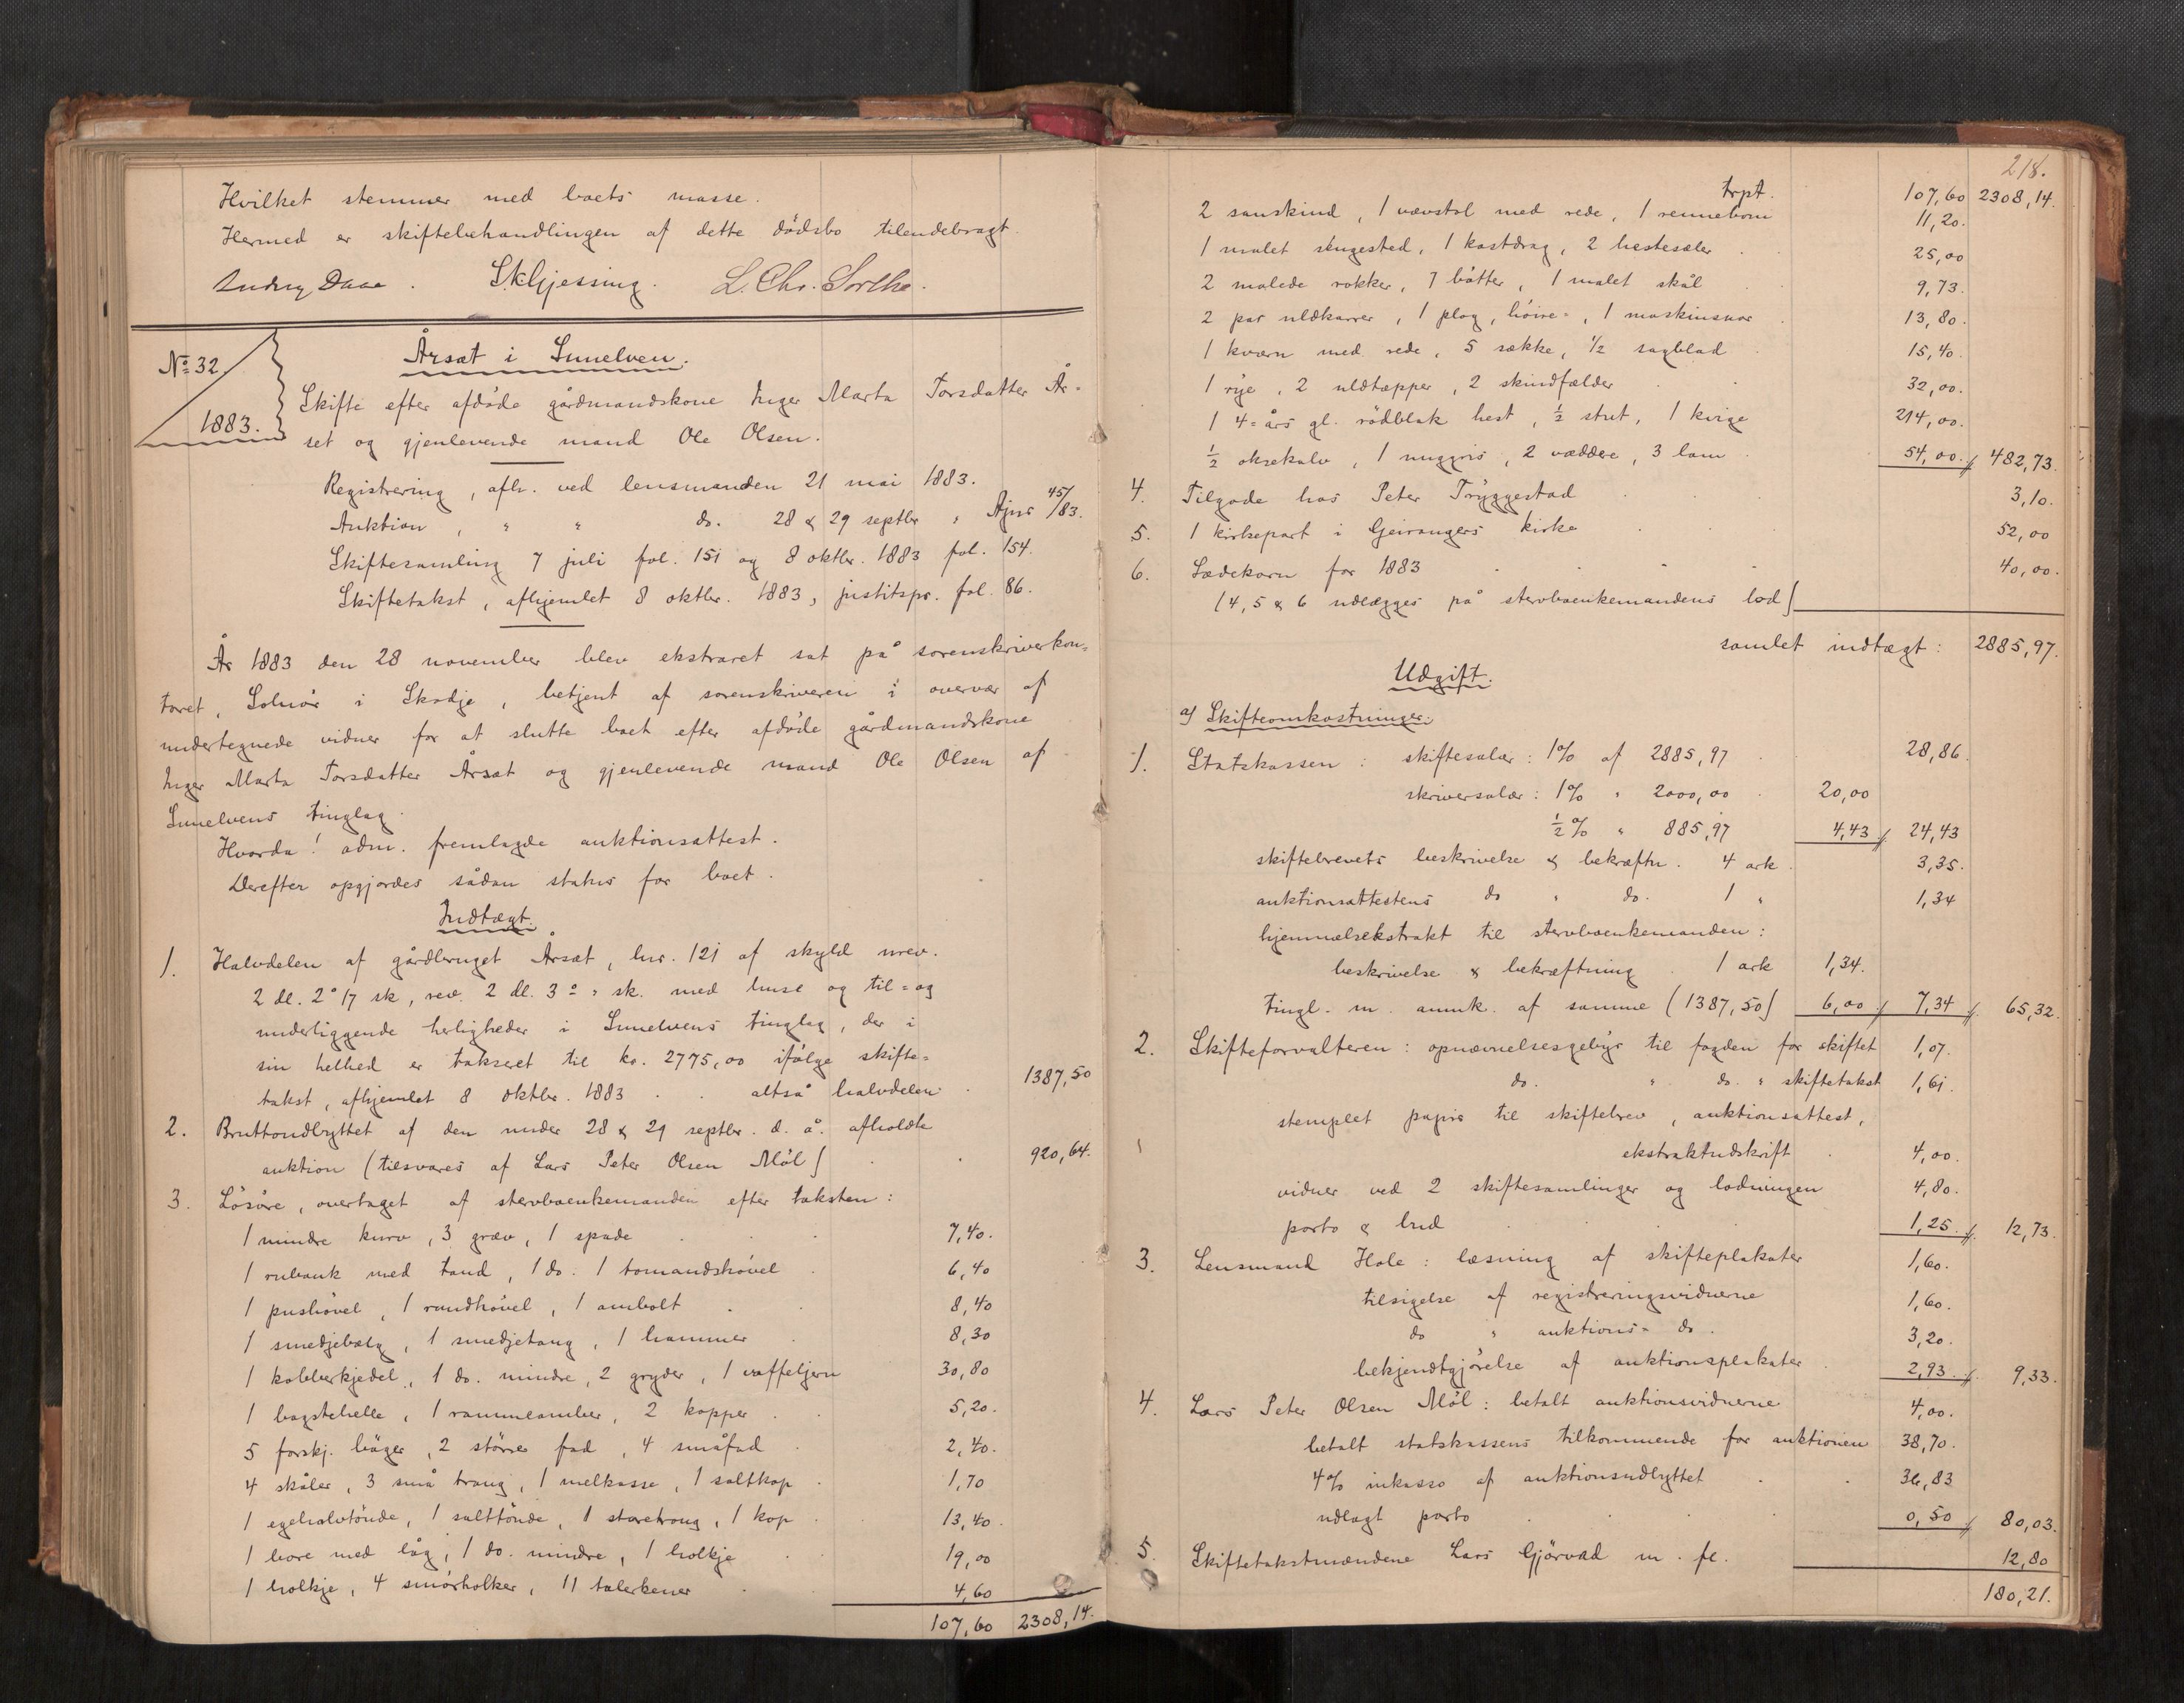 Hvilket stemmer med boets masse.
Hermed er skiftebehandlingen af dette dödsbo tilendebragt.
Daae. S.K.Gjessing. L. Chr.
No 32.
1883.
Årsæt i Sunelven.
Skifte efter afdöde gårdmandskone Inger Marta Torsdatter År-
set og gjenlevende mand Ole Olsen.
Registrering, afh. ved lensmanden 21 mai 1883.
Auktion, " " do. 28 & 29 septbr " Ajnr 45/83.
Skiftesamling 7 juli fol. 151 og 8 oktbr. 1883 fol. 154.
Skiftetakst, afhjemlet 8 oktbr. 1883, justitspr. fol. 86.
År 1883 den 28 november blev ekstraret sat på sorenskriverkon-
toret, Solnör i Skodje, betjent af sorenskriveren i overvær af
undertegnede vidner for at slutte boet efter afdöde gårdmandskone
Inger Marta Torsdatter Årsæt og gjenlevende mand Ole Olsen af
Sunelvens tinglag.
Hvorda! adm. fremlagde auktionsattest.
Derefter opgjordes sådan status for boet.
Indtægt.
1. Halvdelen af gårdbruget Årsæt, lnr. 121 af skyld urev.
2 dl. 2 o 17 sk, rev. 2 dl. 3 o " sk. med huse og til- og
underliggende herligheder i Sunelvens tinglag, der i
sin helhed er takseret til kr. 2775,00 ifölge skifte-
takst, afhjemlet 8 oktbr. 1883 . . altså halvdelen . 1387,50
2. Bruttoudbyttet af den under 28 & 29 septbr. d. å. afholdte
auktion (tilsvares af Lars Peter Olsen Möl) . . 920,64.
3. Lösöre, overtaget af stervboenkemanden efter taksten:
1 mindre kurv, 3 græv, 1 spade . . . 7,40.
1 rubank med tand, 1 do. 1 tomandshövel . 6,40
1 pushövel, 1 rundhövel, 1 ambolt . 8,40
1 smedjebælg, 1 smedjetang, 1 hammer . 8,30
1 kobberkjedel, 1 do. mindre, 2 gryder, 1 vaffeljern 30,80
1 bagstehelle, 1 rammeamber, 2 kopper . . 5,20.
5 forskj. böger, 2 större fad, 4 småfad . 2,40.
4 skåler, 3 små traug, 1 melkasse, 1 saltkop . 1,70
1 egehalvtönde, 1 salttönde, 1 storetraug, 1 kop . 13,40.
1 hore med låg, 1 do. mindre, 1 holkje . 19,00
1 holkje, 4 smörholker, 11 talerkener . 4,60
107,60 2308,14.
218.
trpt. 107,60 2308,14.
2 sauskind, 1 vævstol med rede, 1 rennebom 11,20.
1 malet sengested, 1 kastdrag, 2 hestesæler . 25,00
2 malede rokker, 7 bötter, 1 malet skål . 9,73.
2 par uldkarrer, 1 plog, höire-, 1 maskinsnor . 13,80.
1 kværn med rede, 5 sække, 1/2 sagblad . 15,40.
1 rye, 2 uldtæpper, 2 skindfælder . . 32,00.
1 4-års gl. rödblak hest, 1/2 stut, 1 kvige 214,00.
1/2 oksekalv, 1 unggris, 2 væddere, 3 lam . 54,00. 482,73.
4. Tilgode hos Peter Tryggestad . . . 3,10.
5. 1 kirkepart i Geirangers kirke . . . 52,00
6. Sædekorn for 1883 . . . . 40,00.
(4, 5 & 6 udlægges på stervboenkemandens lod)
samlet indtægt: 2885,97.
Udgift.
a) Skifteomkostninger:
1. Statskassen: skiftesalær: 1% af 2885,97 . 28,86.
skriversalær: 1% " 2000,00 . 20,00
1/2% " 885,97 4,43 24,43
skiftebrevets beskrivelse & bekræftn. 4 ark . 3,35.
auktionsattestens do " do. 1 " 1,34
hjemmelsekstrakt til stervboenkemanden:
beskrivelse & bekræftning . 1 ark 1,34.
tingl. m. anmk. af samme (1387,50) 6,00 7,34 65,32.
2. Skifteforvalteren: opnævnelsesgebyr til fogden for skiftet 1,07.
do. " do. " skiftetakst 1,61.
stemplet papir til skiftebrev, auktionsattest,
ekstraktudskrift . 4,00.
vidner ved 2 skiftesamlinger og lodningen 4,80.
porto & bud . . . 1,25. 12,73.
3. Lensmand Hole: læsning af skifteplakater 1,60.
tilsigelse af registreringsvidnerne 1,60.
do " auktions- do. 3,20.
bekjendtgjörelse af auktionsplakater . 2,93. 9,33.
4. Lars Peter Olsen Möl: betalt auktionsvidnerne 4,00.
betalt statskassens tilkommende for auktionen 38,70.
4% inkasso af auktionsudbyttet . . 36,83
udlagt porto . . . 0,50 80,03.
5. Skiftetakstmændene Lars Gjörvad m. fl. 12,80
180,21.